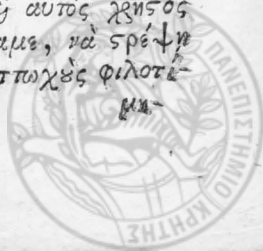 αὐτὸς χρῆσος
αμε, νὰ στρέψῃ
πτωχὲς φιλοτί-
μη-
ΠΑΝΕΠΙΣΤΗΜΙΟ ΚΡΗΤΗΣ